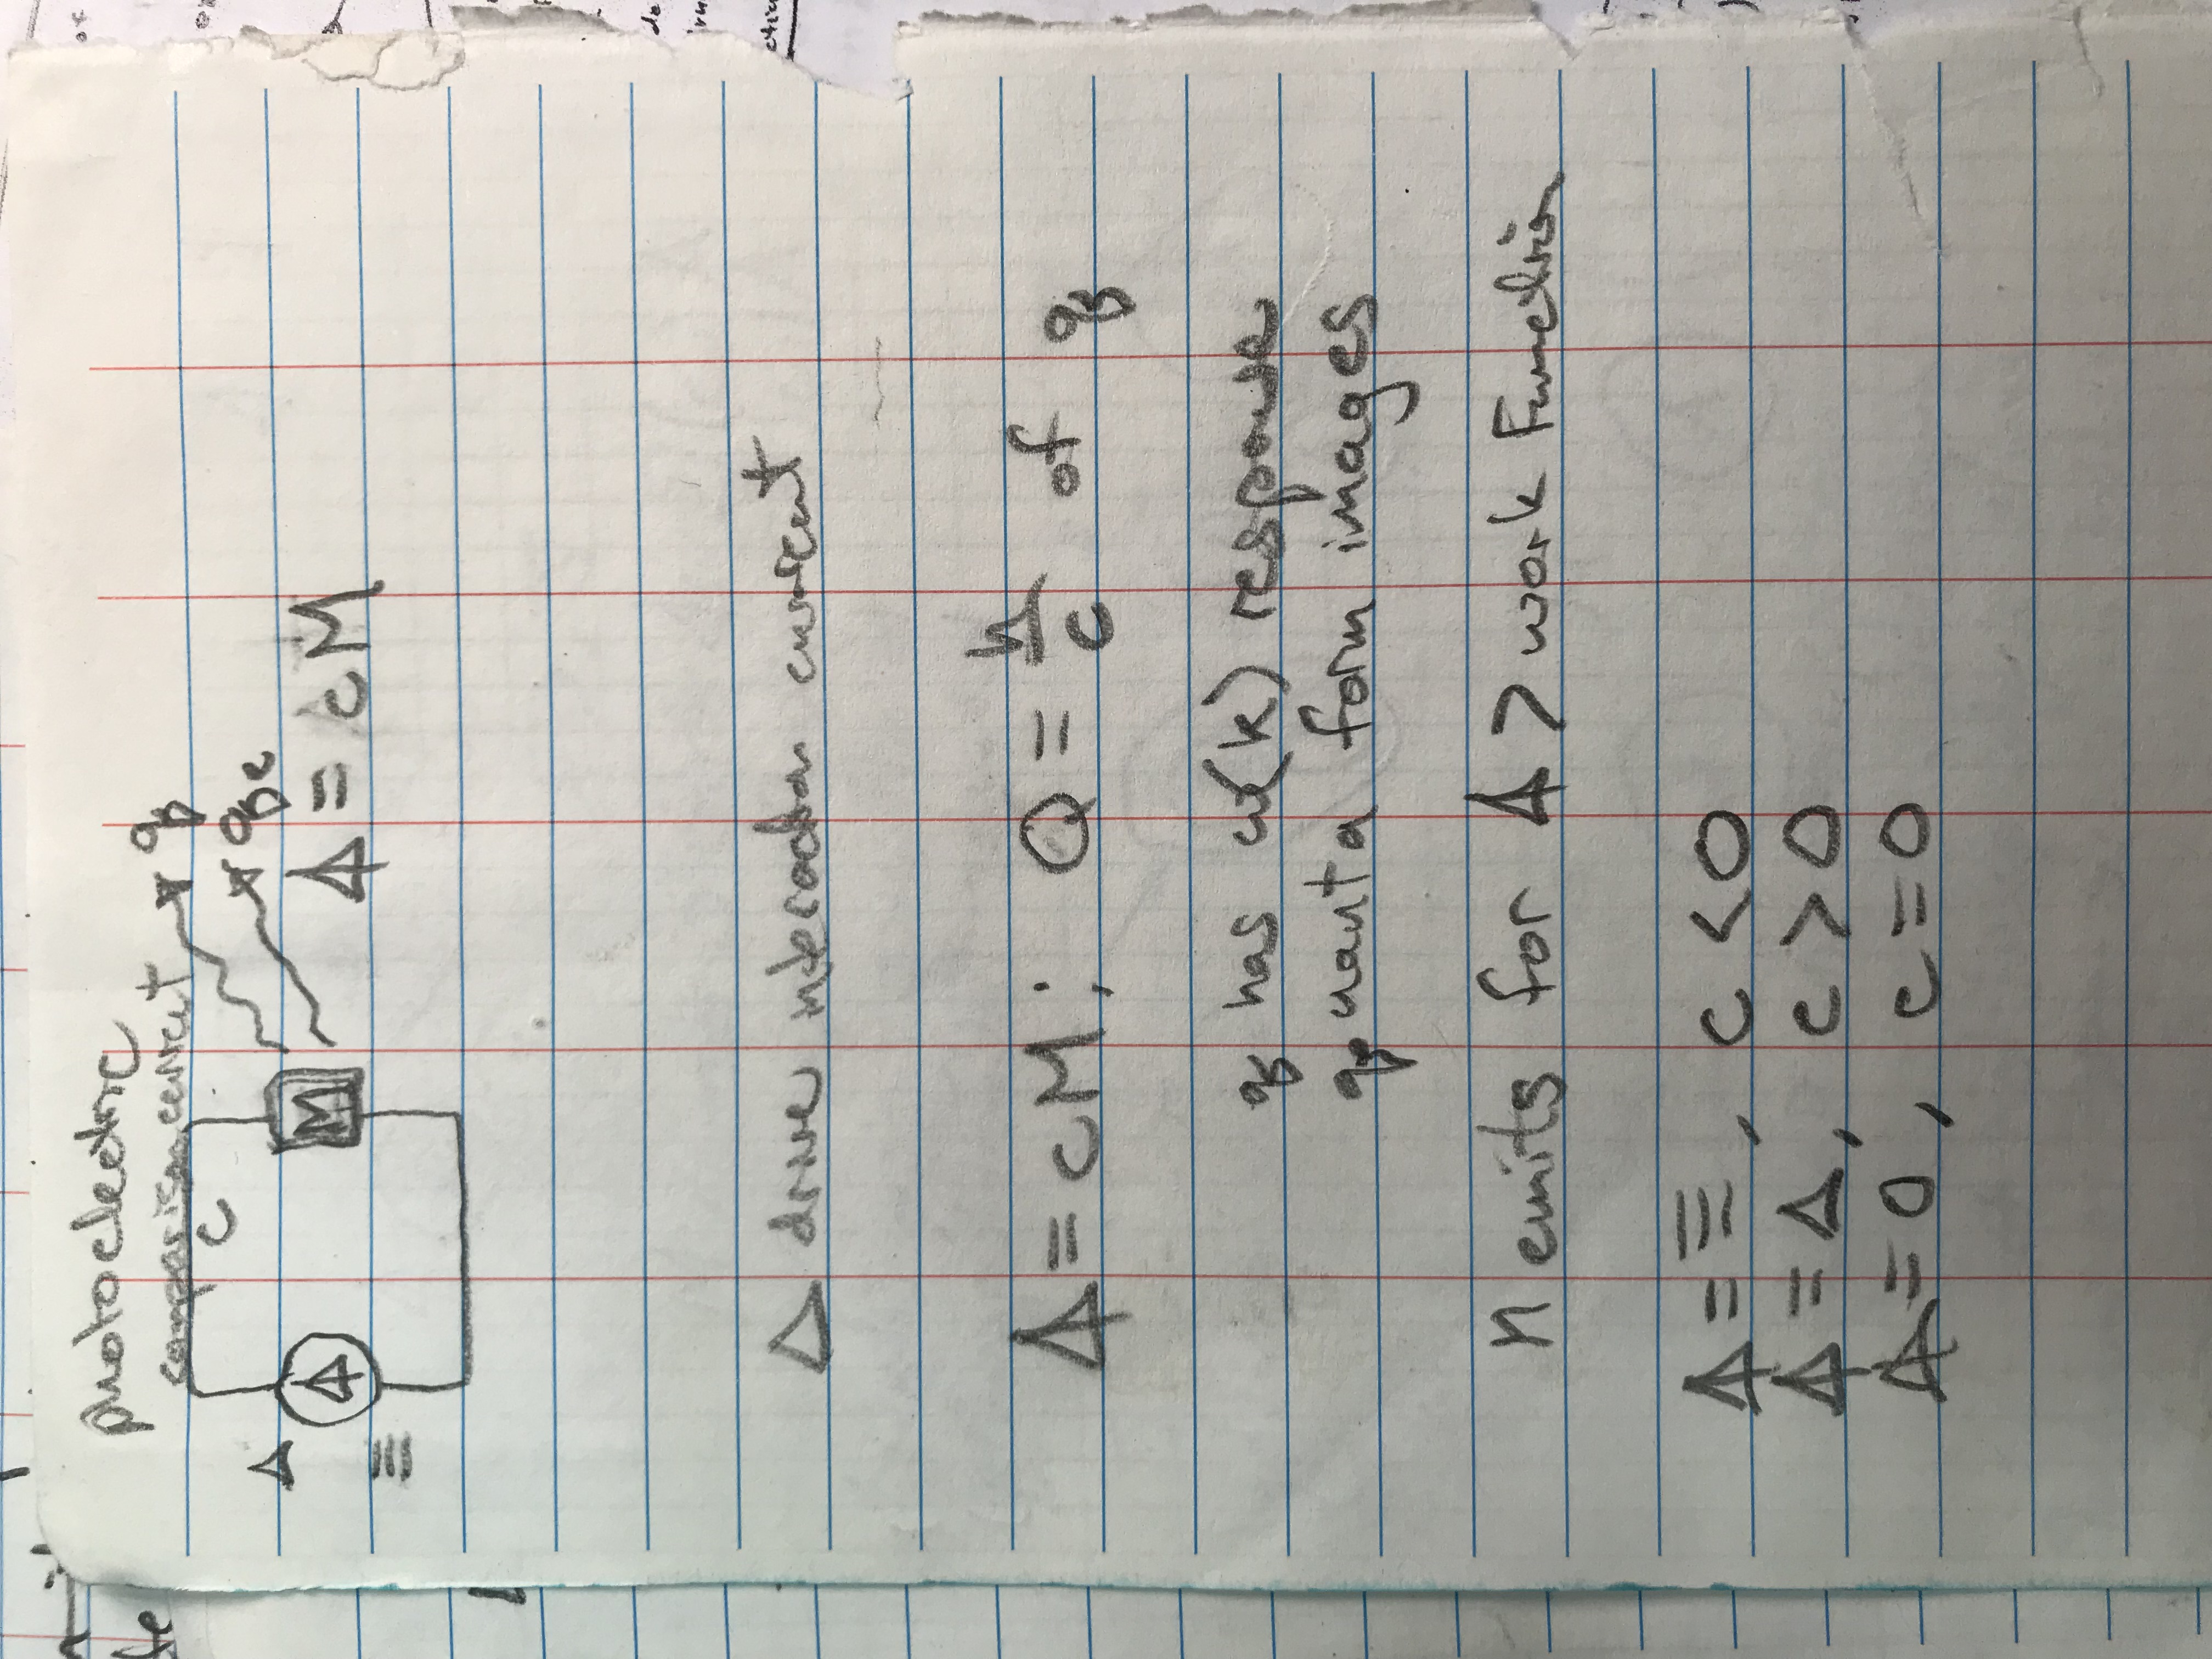 photoelectric
comparison current
c
q
qe
Δ
M
≡
⍋ = cM
Δ drive interaction current
⍋ = cM; Q = h/c of q
q has ω(k) response
quanta form images
M emits for ⍋ > work Function
⍋ = ≡, c < 0
⍋ = Δ, c > 0
⍋ = 0, c = 0